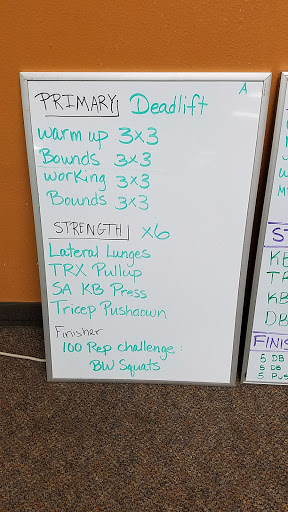 A
PRIMARY Deadlift
warm up 3x3
Bounds 3x3
working 3x3
Bounds 3x3
STRENGTH x6
Lateral Lunges
TRX Pullup
SA KB Press
Tricep Pushdown
Finisher
100 Rep challenge:
BW Squats
KB
KB
DB
5 DB
5 DB